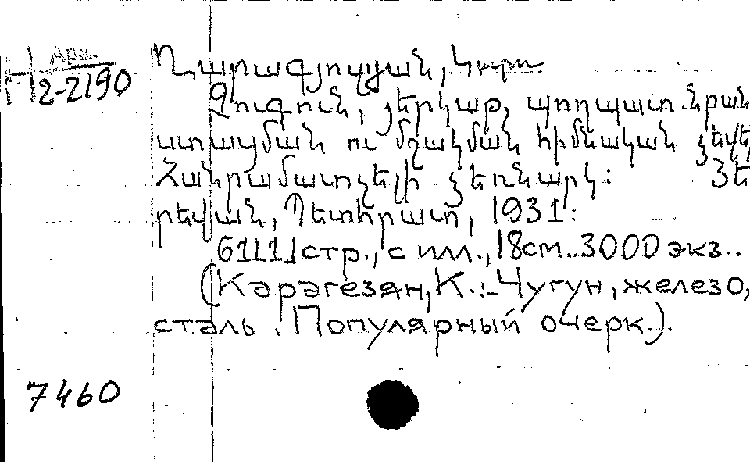 Арм.
H2-2190
Ղարագյոզյան, Կարո
Չուգուն, յերկաթ, պողպատ. նրան
ստացման ու մշակման հիմնական ձևե
Հանրամատչելի ձեռնարկ: Յե
րեվան, Պետհրատ, 1931:
61[1]стр., с илл., 18см.. 3000 экз..
(Карагезян, К.:-Чугун, железо,
сталь. Популярный очерк.).
7460